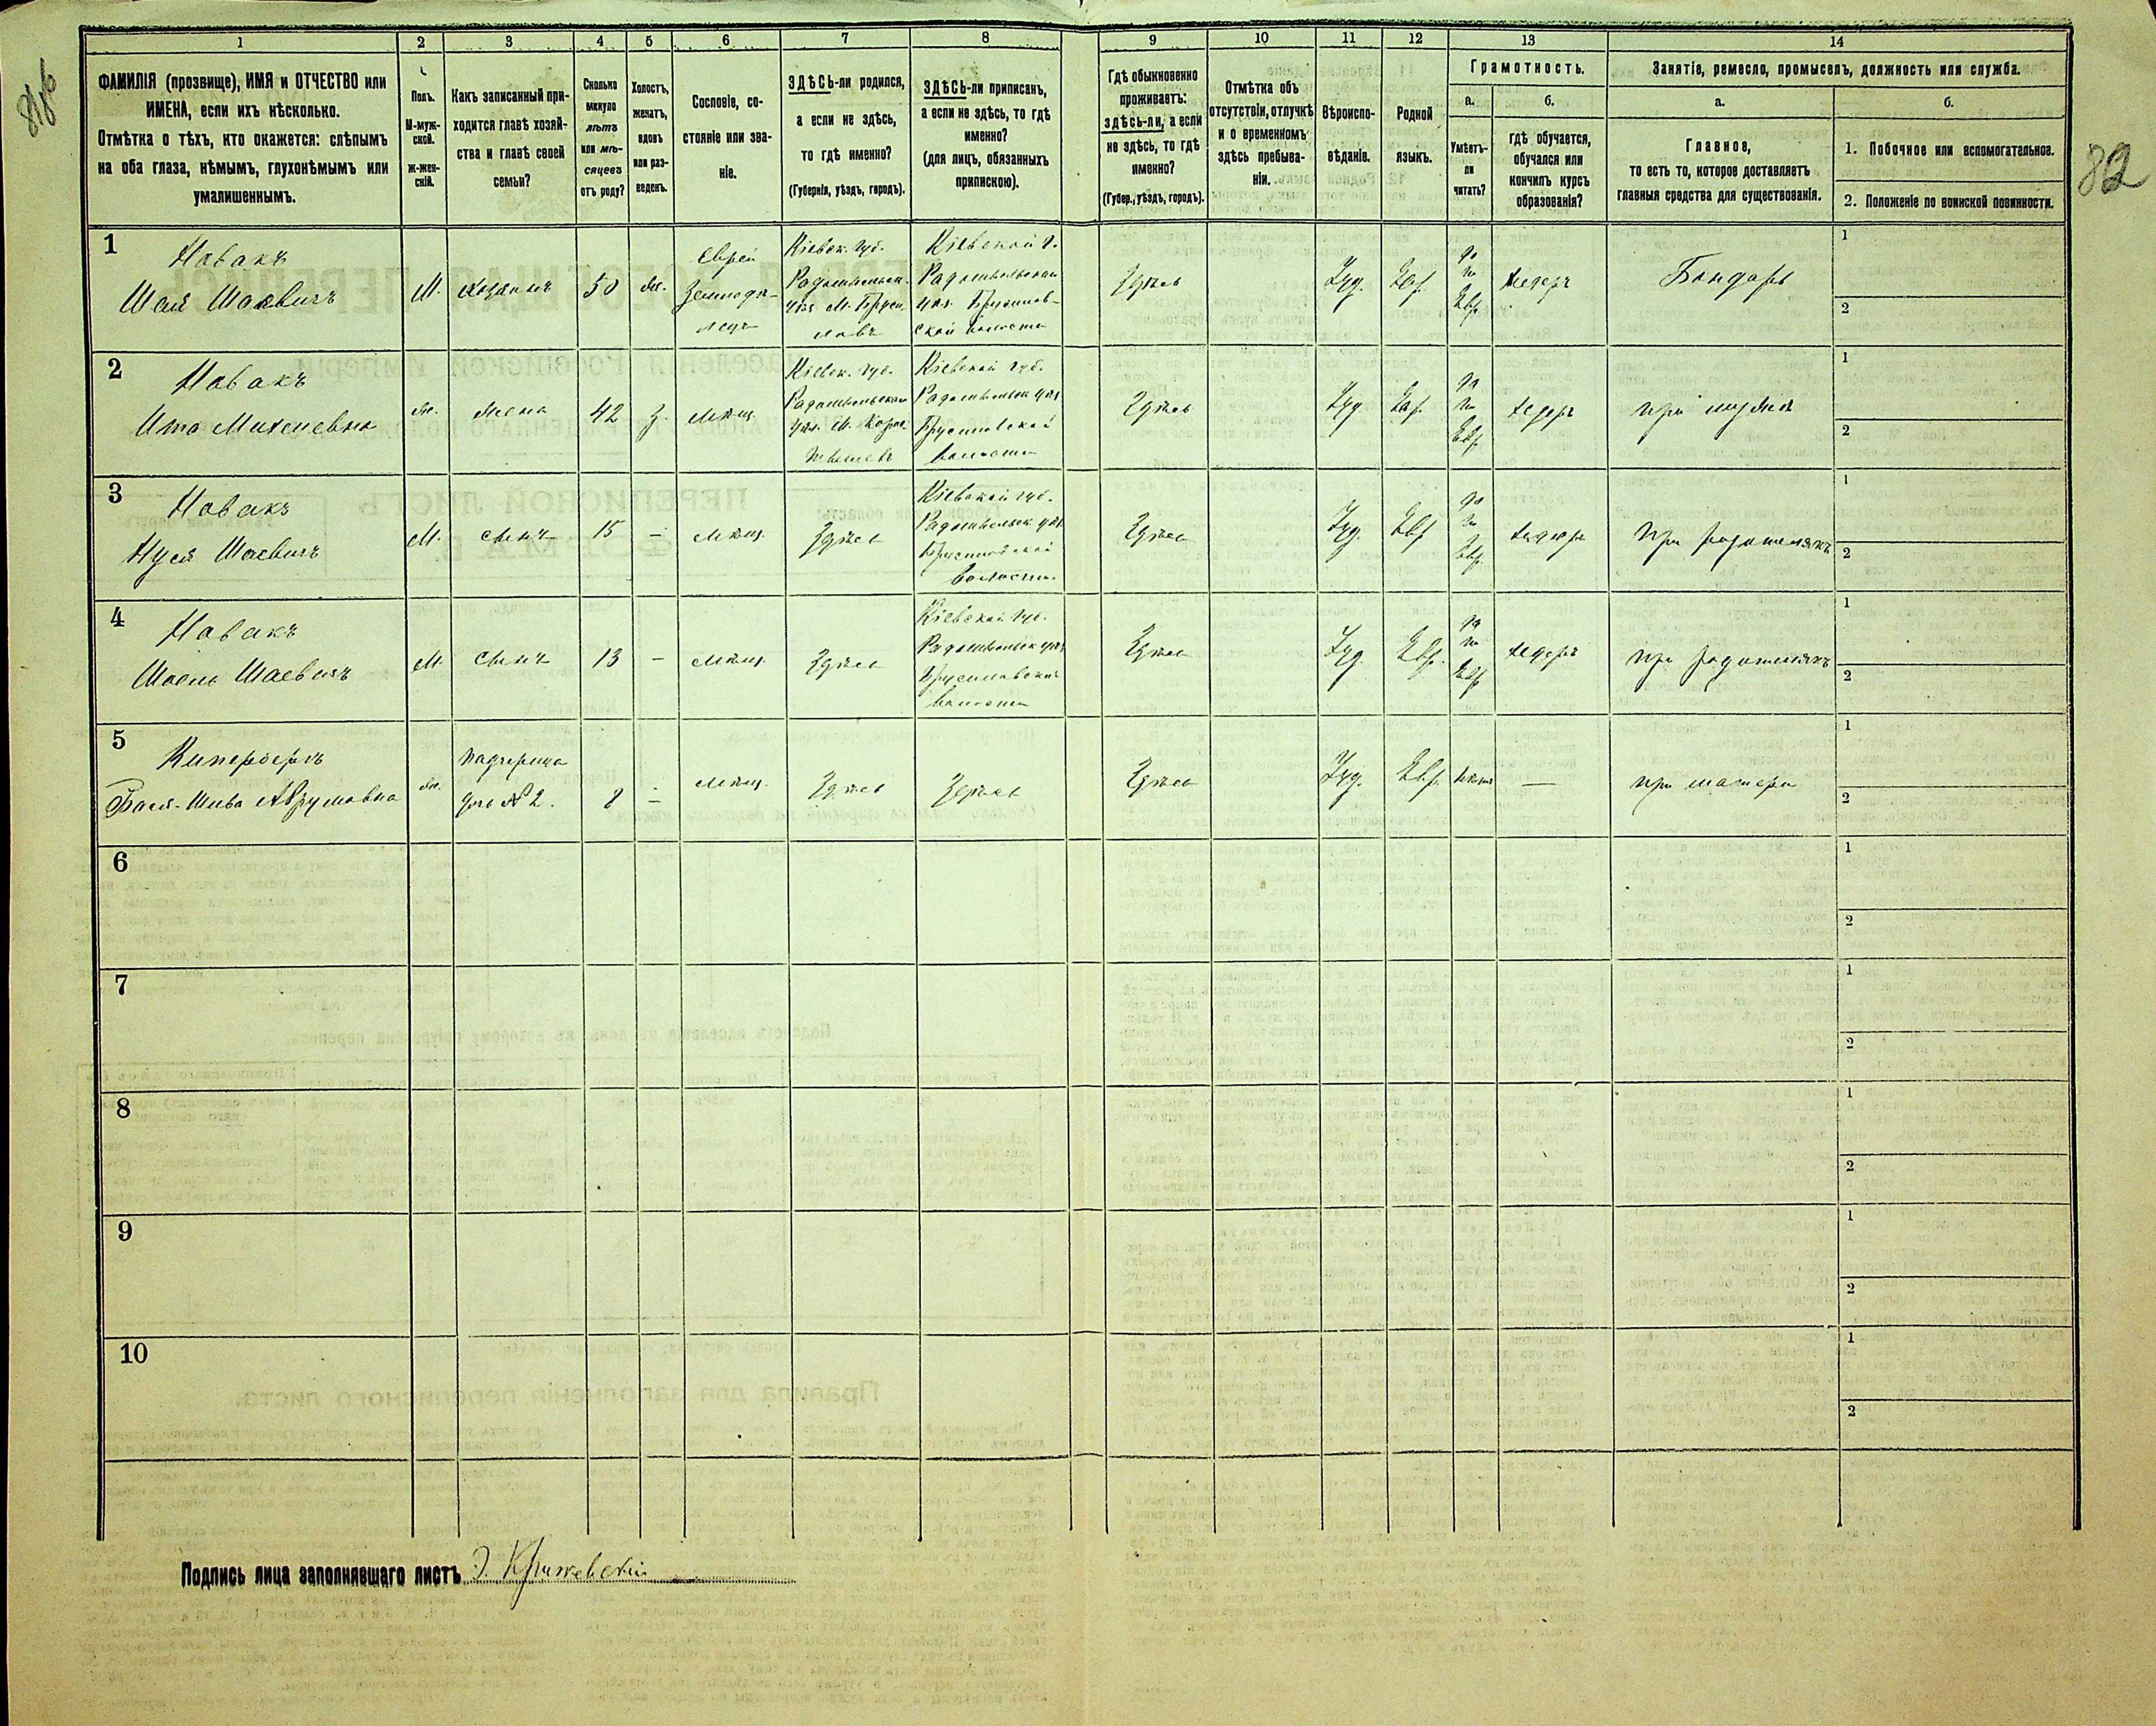 1 2 3 4 5 6 7 8 9 10 11 12 13 14
ФАМИЛІЯ (прозвище), ИМЯ и ОТЧЕСТВО или
ИМЕНА, если ихъ нѣсколько.
Отмѣтка о тѣхъ, кто окажется: слѣпымъ
на оба глаза, нѣмымъ, глухонѣмымъ или
умалишеннымъ.
Полъ.
М-муж-
ской.
ж-жен-
скій.
Какъ записанный при-
ходится главѣ хозяй-
ства и главѣ своей
семьи?
Сколько
минуло
лѣтъ
или мѣ-
сяцевъ
отъ роду?
Холостъ,
женатъ,
вдовъ
или раз-
веденъ.
Сословіе, со-
стояніе или зва-
ніе.
ЗДѢСЬ-ли родился,
а если не здѣсь,
то гдѣ именно?
(Губернія, уѣздъ, городъ).
ЗДѢСЬ-ли приписанъ,
а если не здѣсь, то гдѣ
именно?
(для лицъ, обязанныхъ
припискою).
Гдѣ обыкновенно
проживаетъ:
здѣсь-ли, а если
не здѣсь, то гдѣ
именно?
(Губер., уѣздъ, городъ).
Отмѣтка объ
отсутствіи, отлучкѣ
и о временномъ
здѣсь пребыва-
ніи.
Вѣроиспо-
вѣданіе.
Родной
языкъ.
Грамотность.
а.
Умѣетъ-
ли
читать?
б.
гдѣ обучается,
обучался или
кончилъ курсъ
образованія?
Занятіе, ремесло, промыселъ, должность или служба.
а.
Главное,
то есть то, которое доставляетъ
главныя средства для существованія.
б.
1. Побочное или вспомогательное.
2. Положеніе по воинской повинности.
82
1
Новакъ
Шая Шаевичъ
М.
хозяинъ
50
жн.
Еврей
Земледѣ-
лецъ
Кіевск. губ.
Радомысльск.
уѣз. М. Бруси-
ловъ
Кіевской г.
Радомысльскаго
уѣз. Брусилов-
ской волости
Здѣсь
Іуд.
Евр.
да
по
Евр.
хедеръ
Бондарь
1
2
2
Новакъ
Ита Михелевна
жн.
жена
42
з.
мѣщ.
Кіевск. губ.
Радомысльскаго
уѣз. М.
Кіевской губ.
Радомысльск уѣз
Брусиловской
волости
Здѣсь
Іуд
Евр.
да
по
Евр.
хедеръ
при мужѣ
1
2
3
Новакъ
Нуся Шаевичъ
М.
сынъ
15
–
мѣщ.
Здѣсь
Кіевской губ.
Радомысльск уѣз.
Брусиловской
волости.
Здѣсь
Іуд.
Евр
да
по
Евр.
хедеръ
при родителяхъ
1
2
4
Новакъ
Шоель Шаевичъ
М.
сынъ
13
–
мѣщ.
Здѣсь
Кіевской губ.
Радомысльск уѣз
Брусиловской
волости
Здѣсь
Іуд.
Евр.
да
по
Евр
хедеръ
при родителяхъ
1
2
5
Кипербергъ
Бася-Шива Абрумовна
жн.
падчерица
дочь № 2.
8
–
мѣщ.
Здѣсь
Здѣсь
Здѣсь
Іуд.
Евр.
нѣтъ
—
при матери
1
2
6
1
2
7
1
2
8
1
2
9
1
2
10
1
2
Подпись лица заполнявшаго листъ Э. Крижевскій